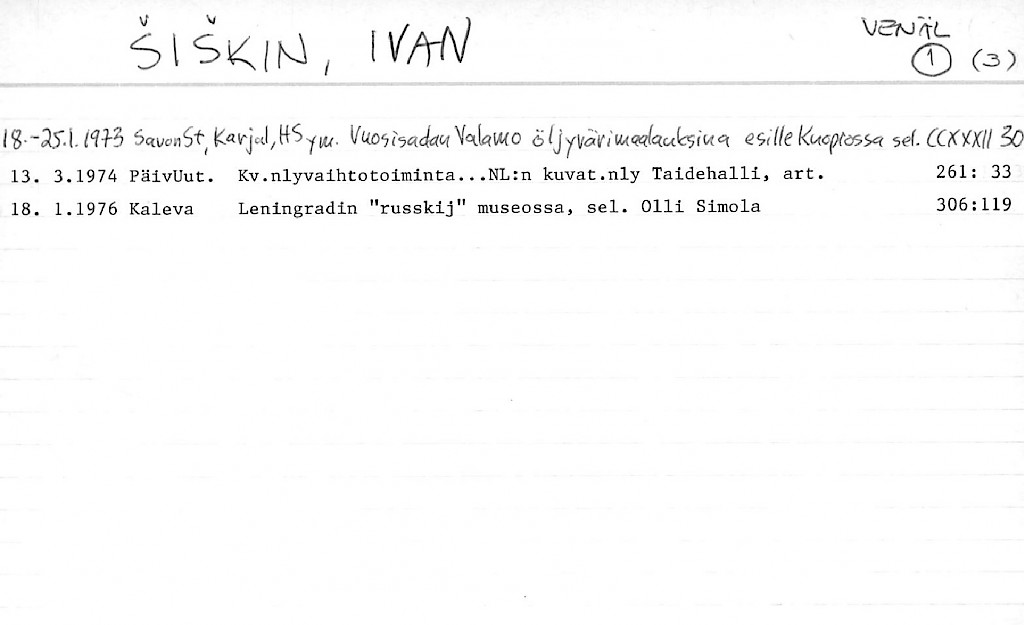 ŠIŠKIN, IVAN VENÄL
1 (3)
18.-25.1.1973 SavonSt, Karjal, HS ym. Vuosisadan Valamo öljyvärimaalauksina esille Kuopiossa sel. CCXXXII 30
13. 3.1974 PäivUut. Kv.nlyvaihtotoiminta...NL:n kuvat.nly Taidehalli, art. 261: 33
18. 1.1976 Kaleva Leningradin "russkij" museossa, sel. Olli Simola 306:119